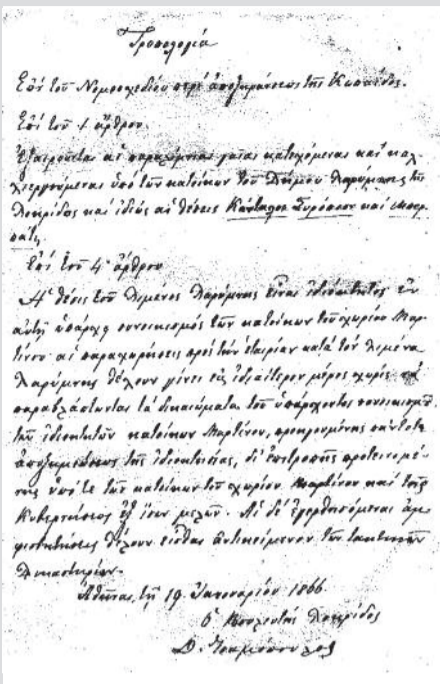 Τροπολογία
Επί του Νομοσχεδίου περί αποξηράνσεως της Κωπαΐδος.
Επί του 1 άρθρου.
Εξαιρούνται αι παραλίμνιαι γαίαι κατεχόμεναι και καλ-
λιεργούμεναι υπό των κατοίκων του Δήμου Λαρύμνης της
Λοκρίδος και ιδίως αι θέσεις και
Επί του 4 άρθρου
Η θέσις του λιμένος Λαρύμνης είναι ιδιόκτητος εν
αυτή υπάρχει συνοικισμός των κατοίκων του χωρίου Μαρ-
τίνου αι παραχωρήσεις προς την εταιρίαν κατά τον λιμένα
Λαρύμνης θέλουν γίνει εις ιδιαίτερον μέρος χωρίς να
παραβλάπτωνται τα δικαιώματα του υπάρχοντος συνοικισμού
των ιδιοκτητών κατοίκων Μαρτίνου, προηγουμένης πάντοτε
αποζημιώσεως της ιδιοκτησίας, δι' επιτροπής προτεινομέ-
νης υπό τε των κατοίκων του χωρίου Μαρτίνου και της
Κυβερνήσεως εξ ίσων μελών. Αι δε εγερθησόμεναι αμ-
φισβητήσεις θέλουν είσθαι αντικείμενον των τακτικών
Δικαστηρίων.
Αθήναι τη 19 Ιανουαρίου 1866
ο Βουλευτής Λοκρίδος